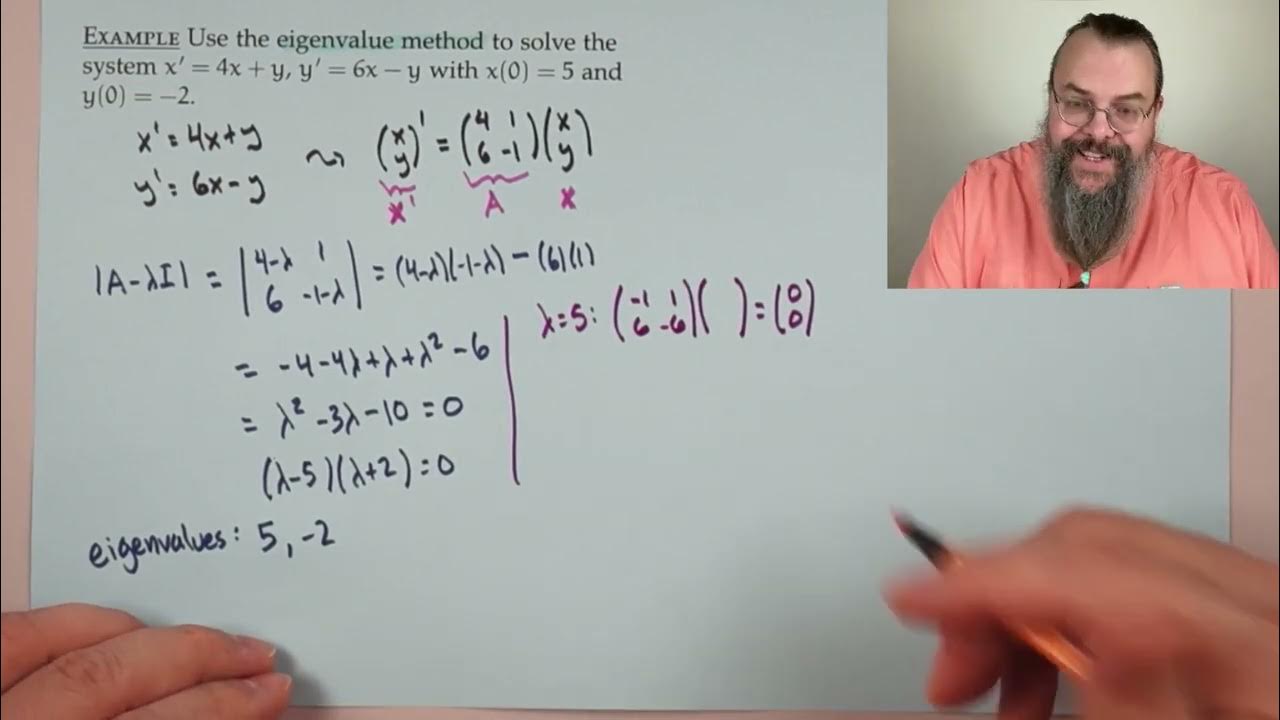 EXAMPLE Use the eigenvalue method to solve the
system x′ = 4x + y, y′ = 6x − y with x(0) = 5 and
y(0) = −2.
x' = 4x+y
y' = 6x-y
⇝ (x y)' = (4 1 6 -1)(x y)
x' A x
|A-λI| = |4-λ 1 6 -1-λ| = (4-λ)(-1-λ) - (6)(1)
= -4-4λ+λ+λ²-6
= λ²-3λ-10 = 0
(λ-5)(λ+2) = 0
eigenvalues: 5, -2
λ=5: (-1 1 6 -6)( ) = (0 0)